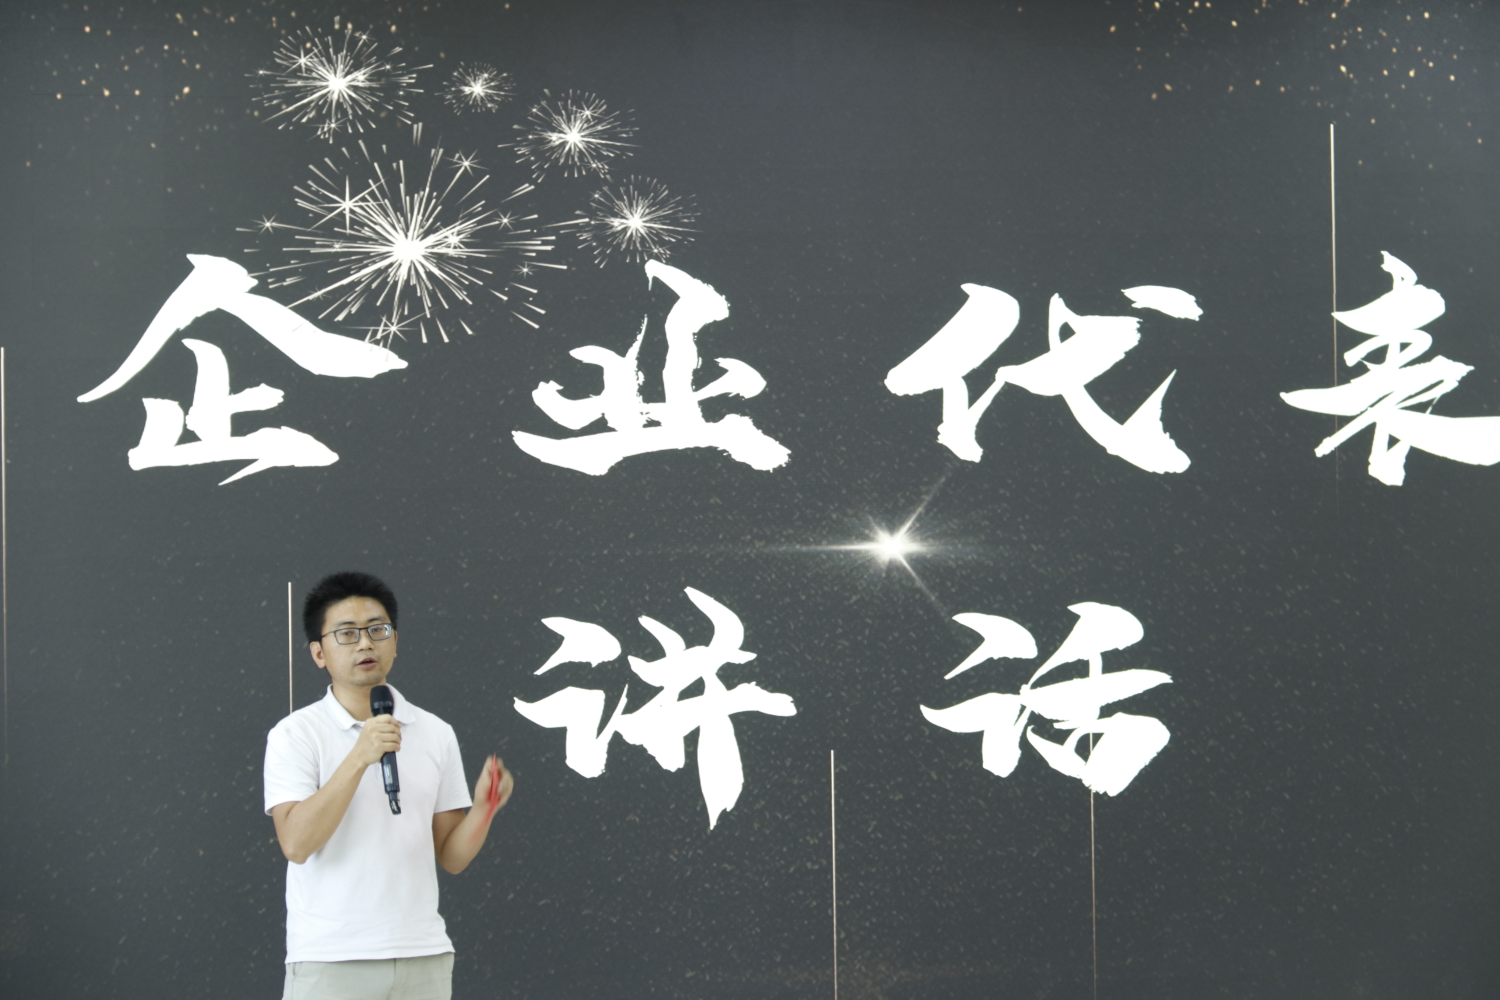 企业代表
讲话